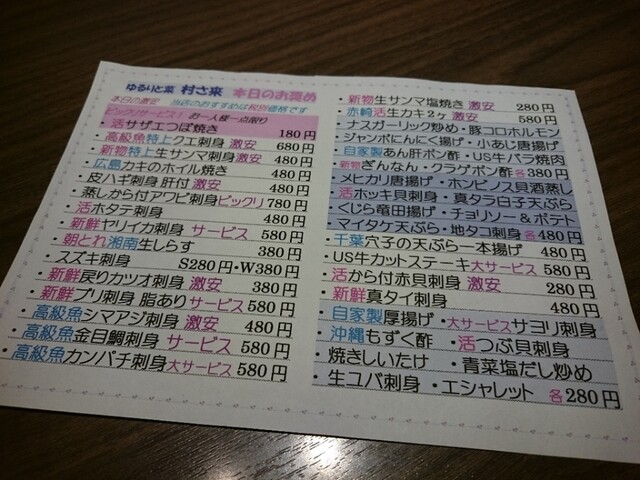 ゆるりと菜 村さ来 本日のお奨め
本日の激定 当店のおすすめは税別価格です
ビックリサービス! お一人様一点限り
・活サザエつぼ焼き 180円
・高級魚特上クエ刺身 激安 680円
・新物特上生サンマ刺身 激安 480円
・広島カキのホイル焼き 480円
・皮ハギ刺身 肝付 激安 480円
・蒸しから付アワビ刺身ビックリ 780円
・活ホタテ刺身 480円
・新鮮ヤリイカ刺身 サービス 580円
・朝とれ湘南生しらす 380円
・スズキ刺身 S280円・W380円
・新鮮戻りカツオ刺身 激安 380円
・新鮮ブリ刺身 脂あり サービス 580円
・高級魚シマアジ刺身 激安 480円
・高級魚金目鯛刺身 サービス 580円
・高級魚カンパチ刺身 大サービス 580円
・新物生サンマ塩焼き 激安 280円
・赤崎活生カキ2ヶ 激安 580円
・ナスガーリック炒め・豚コロホルモン
・ジャンボにんにく揚げ・小あじ唐揚げ
・自家製あん肝ポン酢・US牛バラ焼肉
・新物ぎんなん・クラゲポン酢 各380円
・メヒカリ唐揚げ・ホンビノス貝酒蒸し
・活ホッキ貝刺身・真タラ白子天ぷら
・くじら竜田揚げ・チョリソー&ポテト
・マイタケ天ぷら・地タコ刺身 各480円
・千葉穴子の天ぷら一本揚げ 480円
・US牛カットステーキ 大サービス 580円
・活から付赤貝刺身 激安 280円
・新鮮真タイ刺身 480円
・自家製厚揚げ・大サービスサヨリ刺身
・沖縄もずく酢 ・活つぶ貝刺身
・焼きしいたけ ・青菜塩だし炒め
・生ユバ刺身 ・エシャレット 各280円